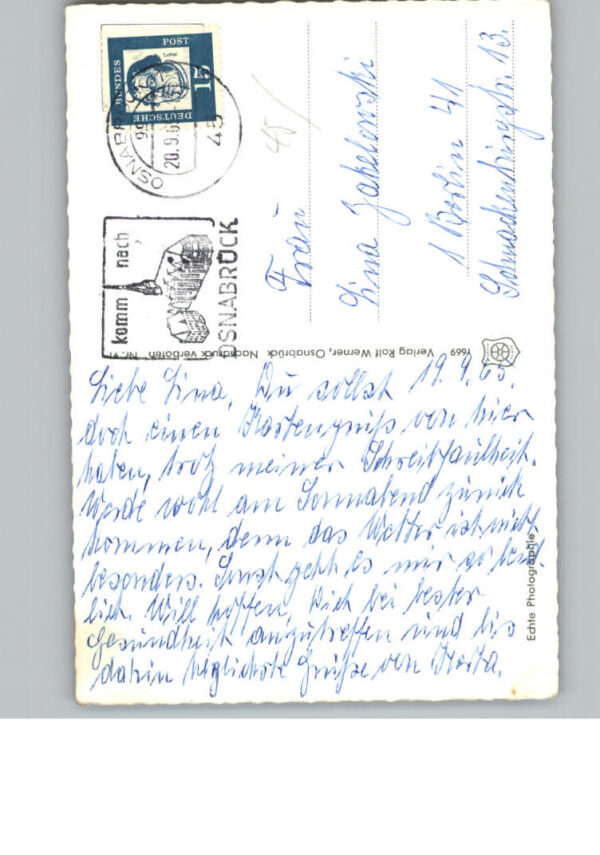 DEUTSCHE
BUNDES
POST
15
Luther
OSNABRÜCK
20.9.6
45
komm nach
OSNABRÜCK
45/
Frau
Lina Jakelovski
1 Berlin 41
Schnackenburgstr. 13.
1669
Verlag Rolf Werner, Osnabrück. Nachdruck verboten. Nr.
Echte Photographie
19.9.65.
Liebe Lina, Du sollst
doch einen Kartengruß von hier
haben, trotz meiner Schreibfaulheit.
Werde wohl am Sonnabend zurück
kommen, denn das Wetter ist nicht
besonders. Sonst geht es mir so
lich. Will hoffen, Dich bei bester
Gesundheit anzutreffen und bis
dahin herzlichste Grüße von Herta.